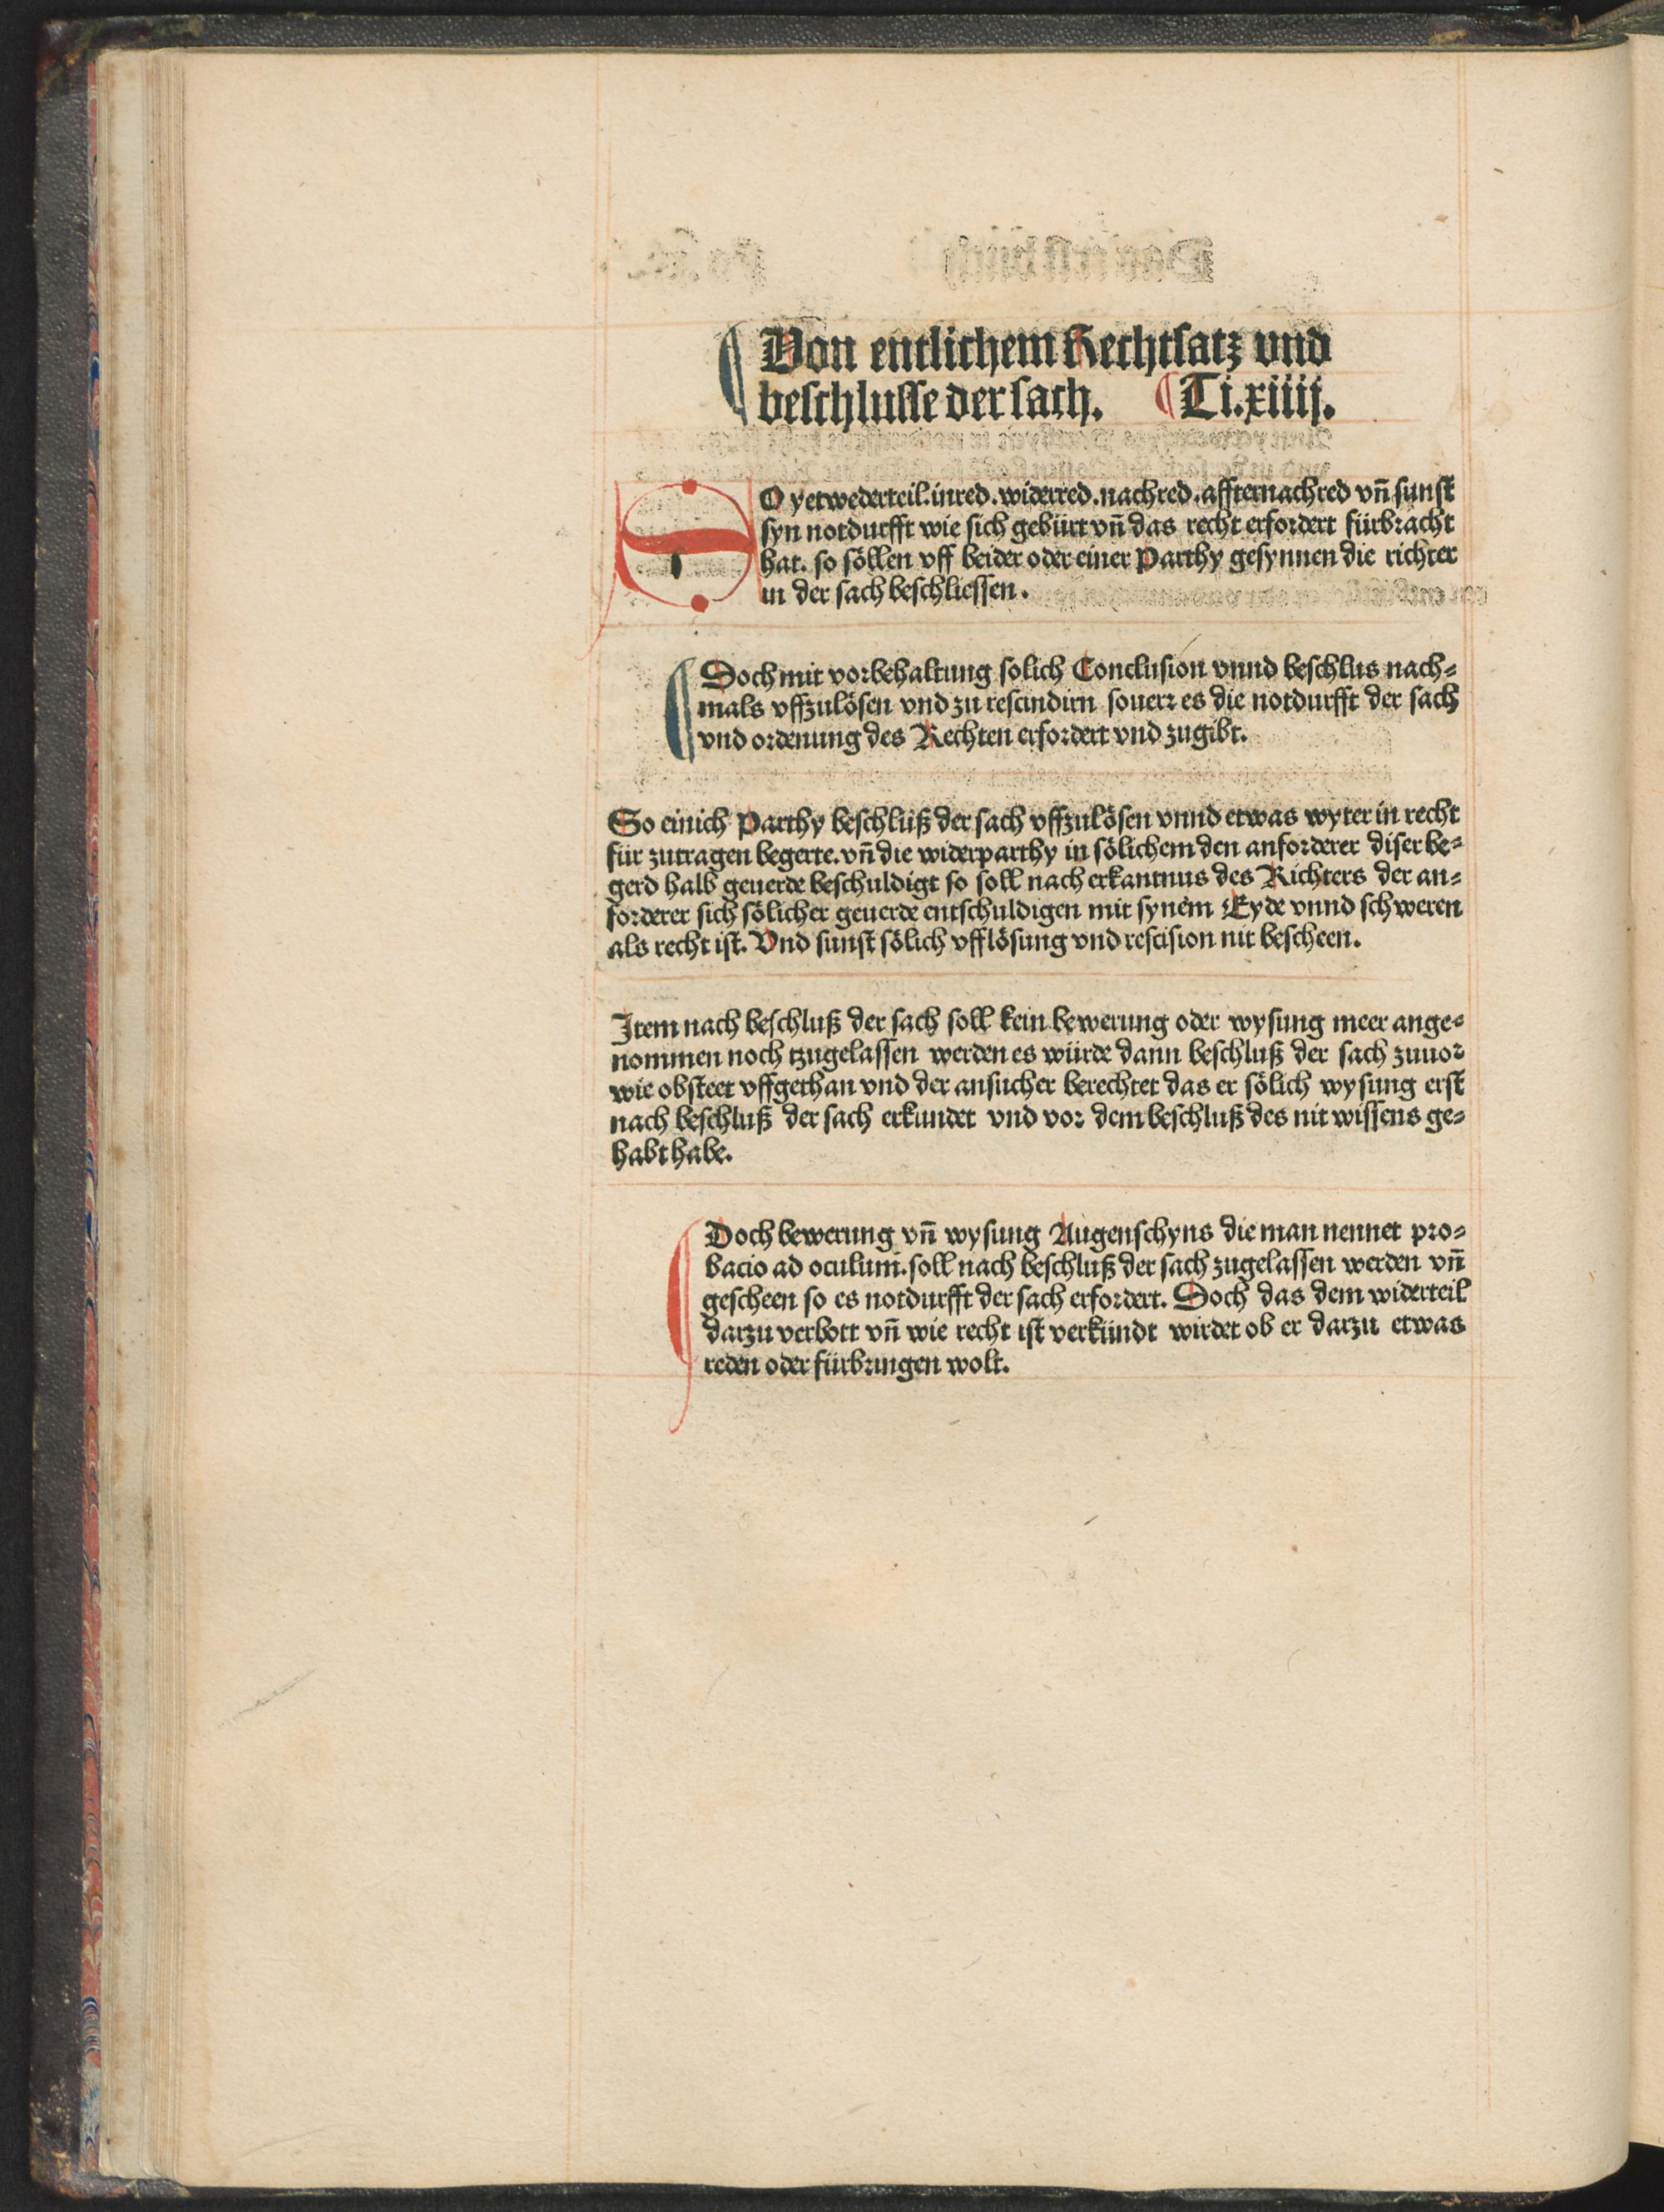 ¶ Von entlichem Rechtsatz vnd
beschlusse der sach. ¶ Ti. xiiij.
SO yetwederteil. inred. widerred. nachred. affternachred vñ sunst
syn notdurfft wie sich gebürt vñ das recht erfordert fürbracht
hat. so söllen vff beider oder einer Parthy gesynnen die richter
in der sach beschliessen.
¶ Doch mit vorbehaltung solich Conclusion vnnd beschlus nach⸗
mals vffzulösen vnd zu rescindirn souerr es die notdurfft der sach
vnd ordenung des Rechten erfordert vnd zugibt.
So einich Parthy beschluß der sach vffzulösen vnnd etwas wyter in recht
für zutragen begerte. vñ die widerparthy in sölichem den anforderer diser be⸗
gerd halb geuerde beschuldigt so soll nach erkantnus des Richters der an⸗
forderer sich sölicher geuerde entschuldigen mit synem Eyde vnnd schweren
als recht ist. Vnd sunst sölich vfflösung vnd rescision nit bescheen.
Item nach beschluß der sach soll kein bewerung oder wysung meer ange⸗
nommen noch tzugelassen werden es würde dann beschluß der sach zuuor
wie obsteet vffgethan vnd der ansucher berechtet das er sölich wysung erst
nach beschluß der sach erkundet vnd vor dem beschluß des nit wissens ge⸗
habt habe.
¶ Doch bewerung vñ wysung Augenschyns die man nennet pro⸗
bacio ad oculum. soll nach beschluß der sach zugelassen werden vñ
gescheen so es notdurfft der sach erfordert. Doch das dem widerteil
darzu verbott vñ wie recht ist verkündt wirdet ob er darzu etwas
reden oder fürbringen wolt.